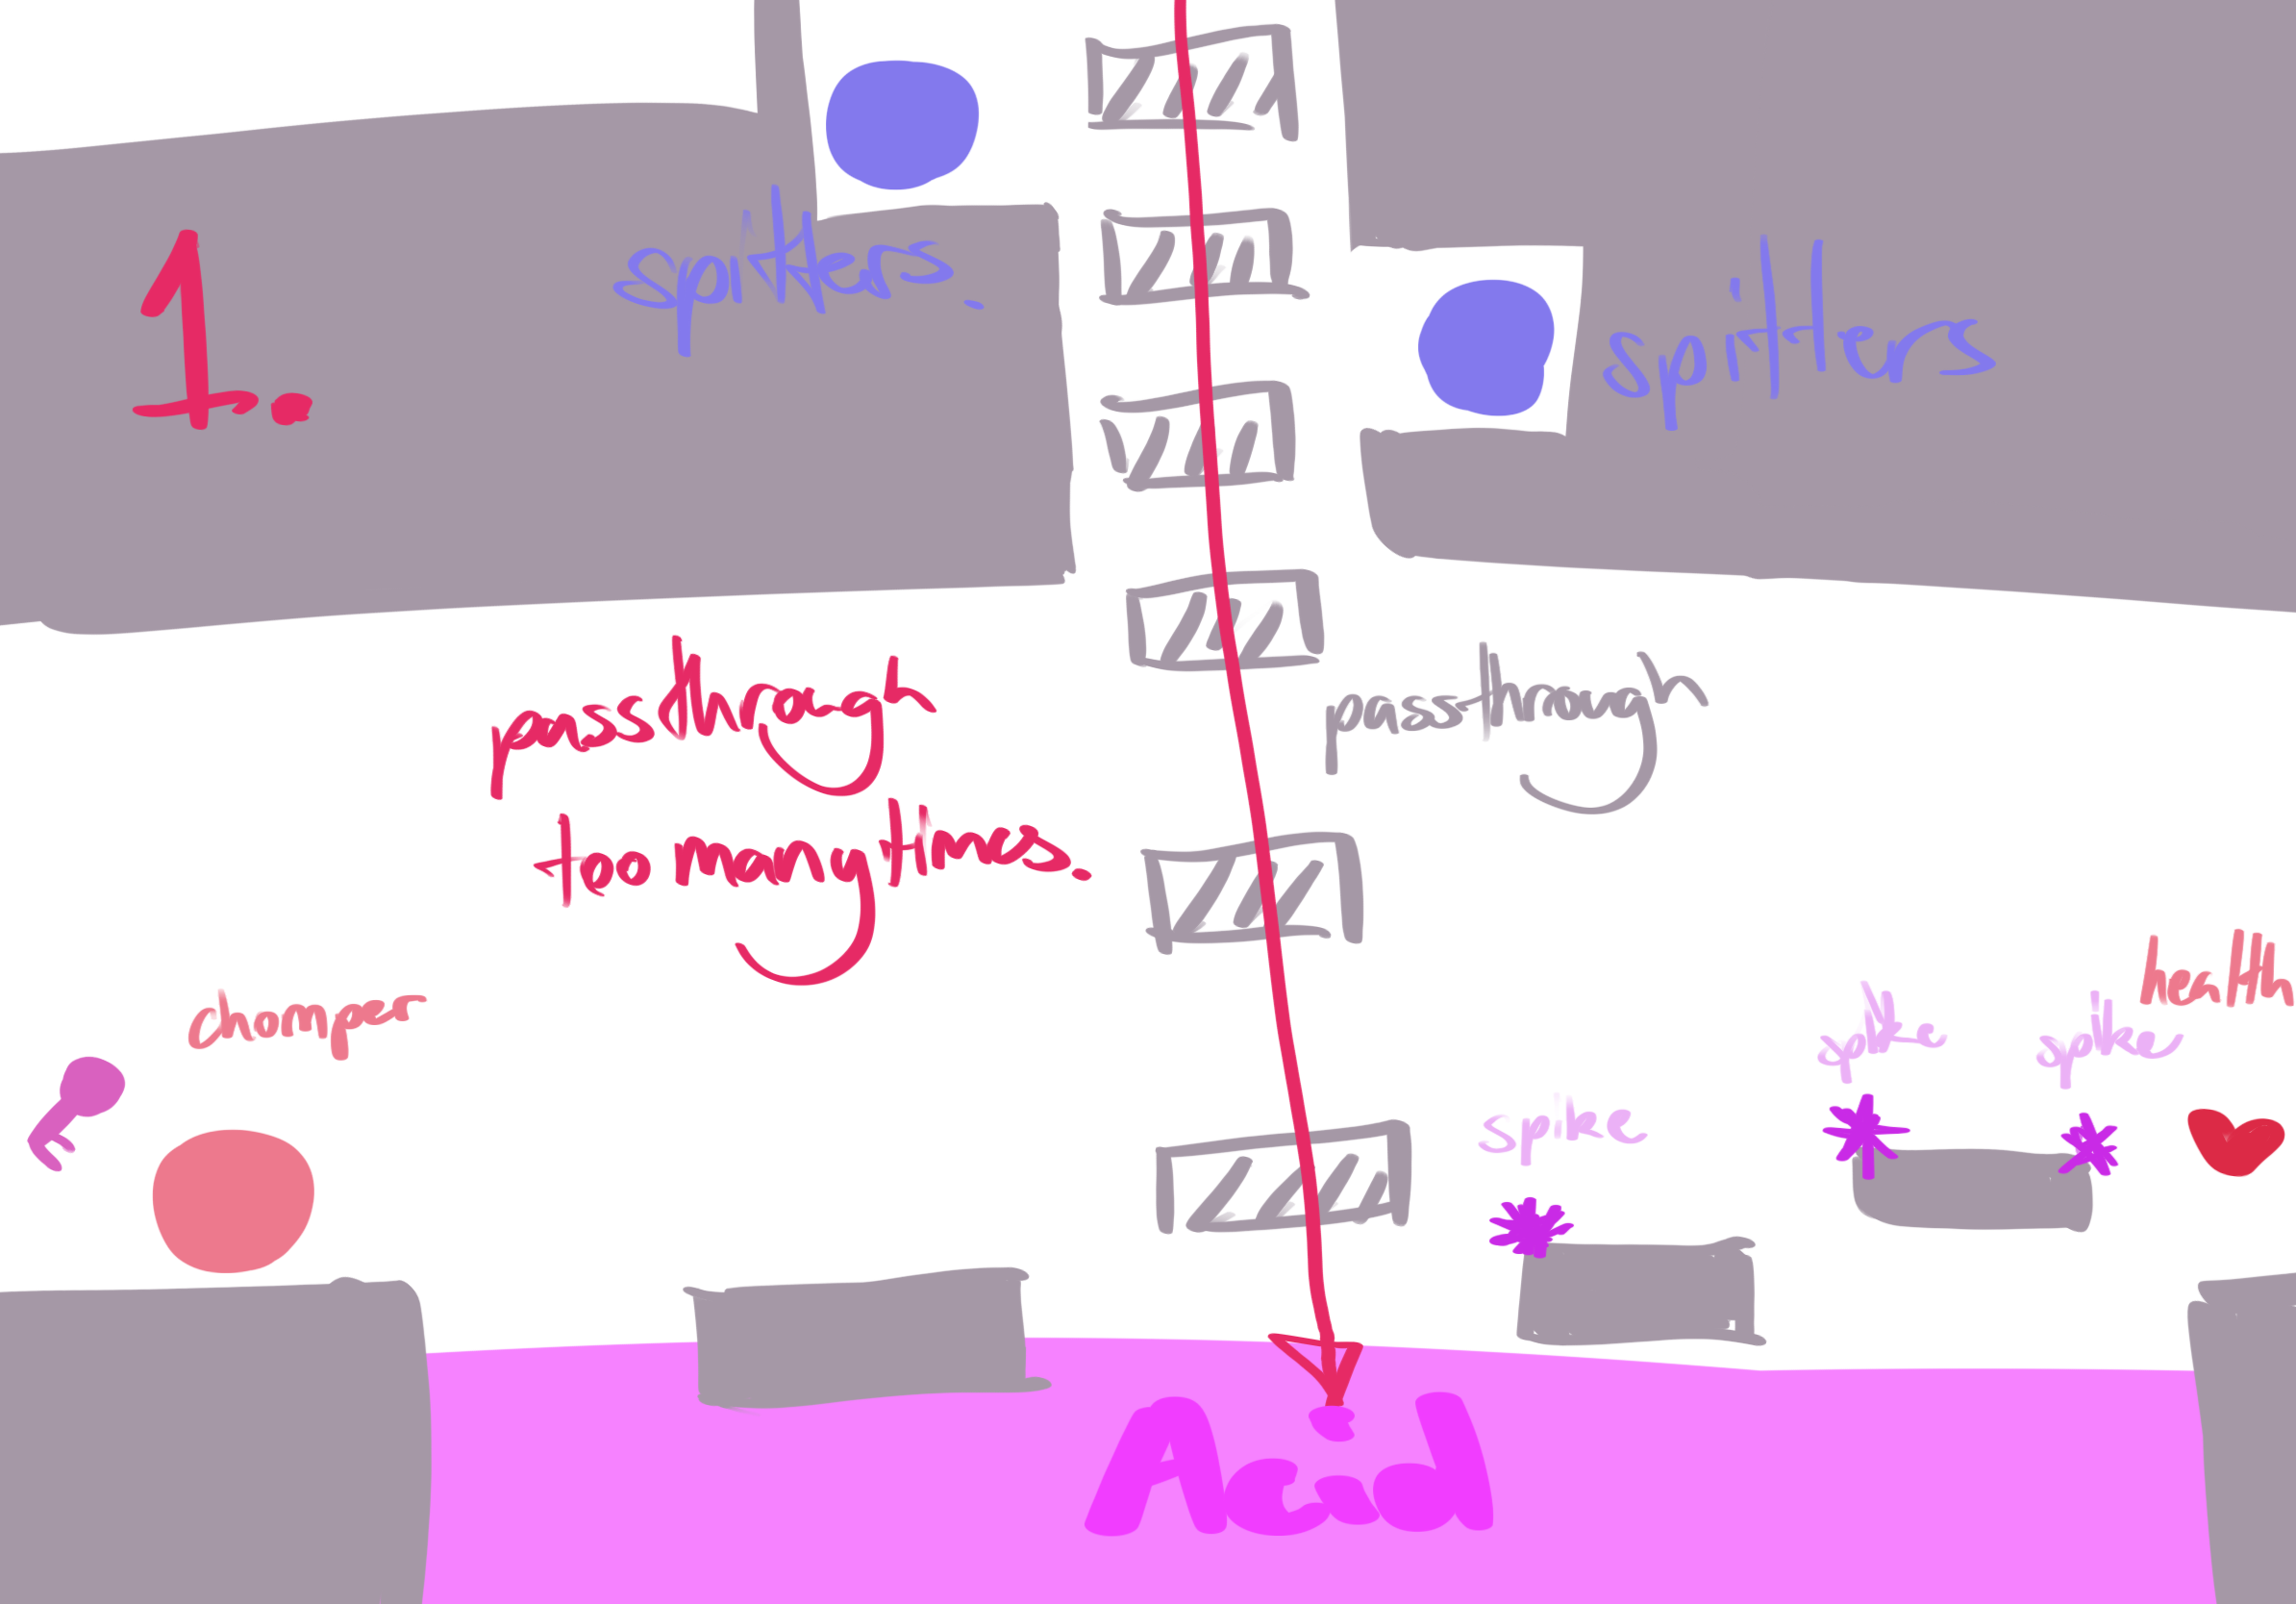 1.
spitters.
spitters
passthrough
too many times.
passthrough
chomper
health
spike
spike
spike
Acid